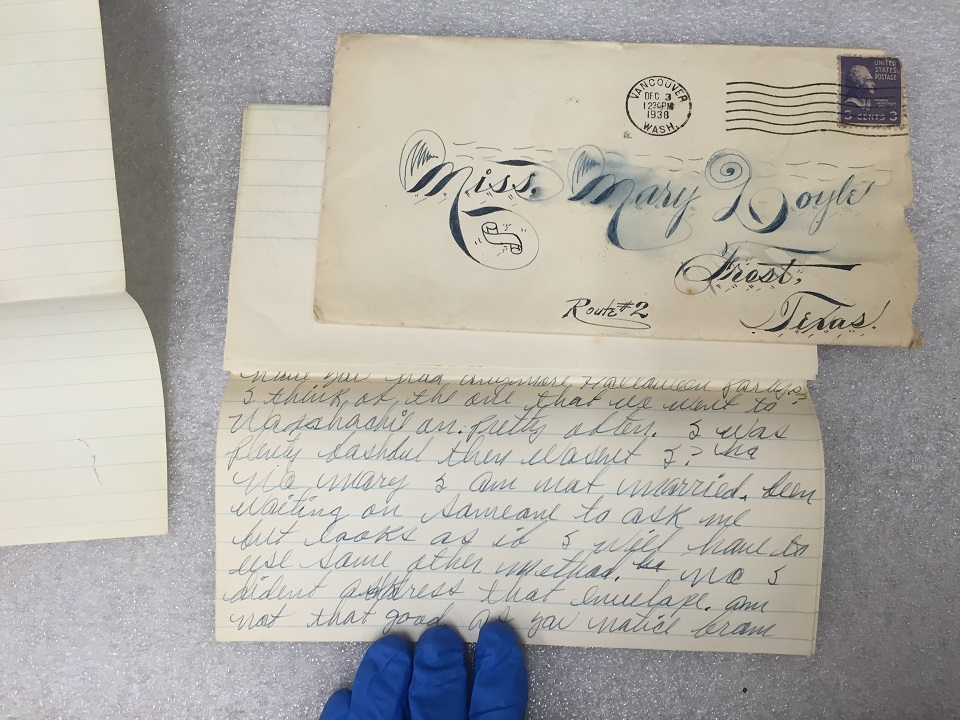 VANCOUVER
DEC 3
12 30 PM
1938
WASH.
UNITED
STATES
POSTAGE
3 CENTS 3
Miss. Mary Doyle
Frost,
Texas.
Route #2
Have you had anymore Halloween Partys?
I think of the one that we went to
Waxahachie on. Pretty often. I was
plenty bashful then wasent I? ha
No mary I am not married. been
waiting on someone to ask me
but looks as if I will have to
use some other method. ha no I
dident address that envelope. am
not that good as you notice from